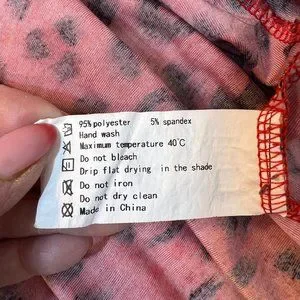 95% polyester 5% spandex
Hand wash
Maximum temperature 40℃
Do not bleach
Drip flat drying in the shade
Do not iron
Do not dry clean
Made in China